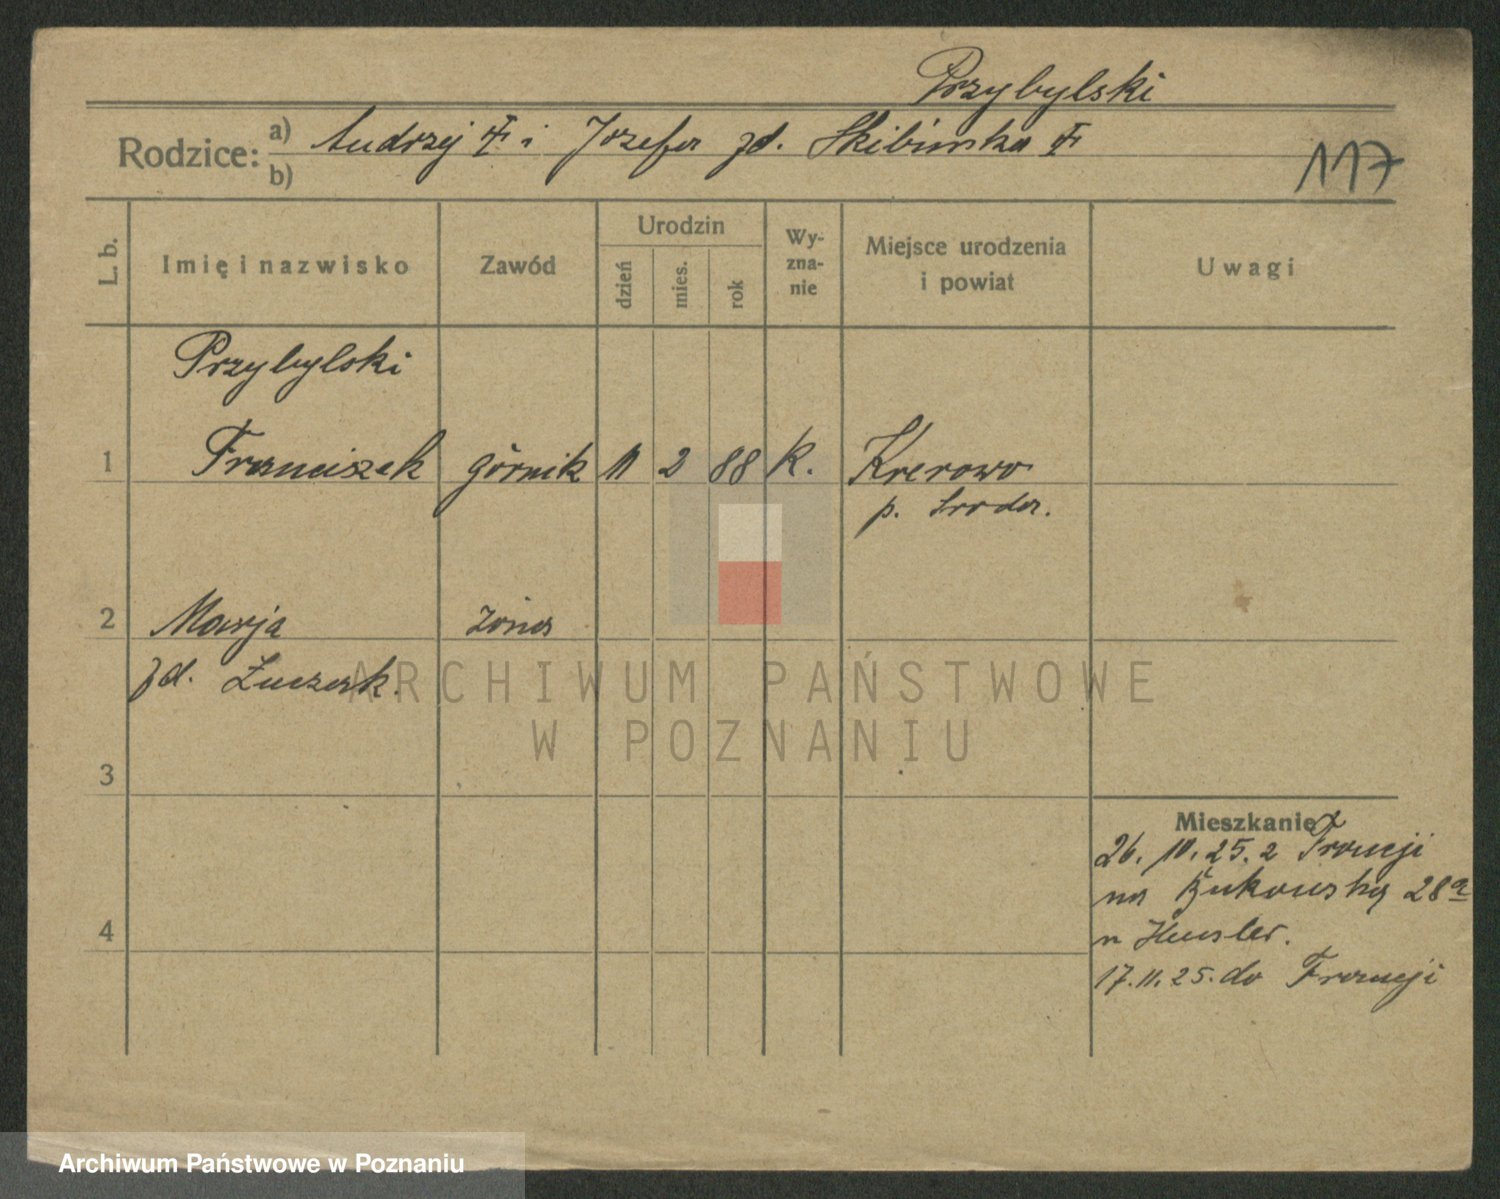 Przybylski
Rodzice: a) Andrzej i Józefa zd. Skibińska
b)
117
L. b.
Imię i nazwisko
Zawód
Urodzin
dzień
mies.
rok
Wy-
zna-
nie
Miejsce urodzenia
i powiat
Uwagi
Przybylski
1 Franciszek górnik 11 2 88 k. Krerowo
p. Środa.
2 Marja żona
zd. Łuczak.
3
4
Mieszkanie
26. 10. 25. z Francji
na Bukowską 28a
17. 11. 25. do Francji
ARCHIWUM PAŃSTWOWE
W POZNANIU
Archiwum Państwowe w Poznaniu